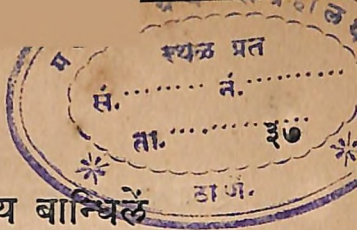 स्थळ प्रत
सं. .......... नं. ..........
ता. .......... ३७
ठाणें.
य बान्धिलें